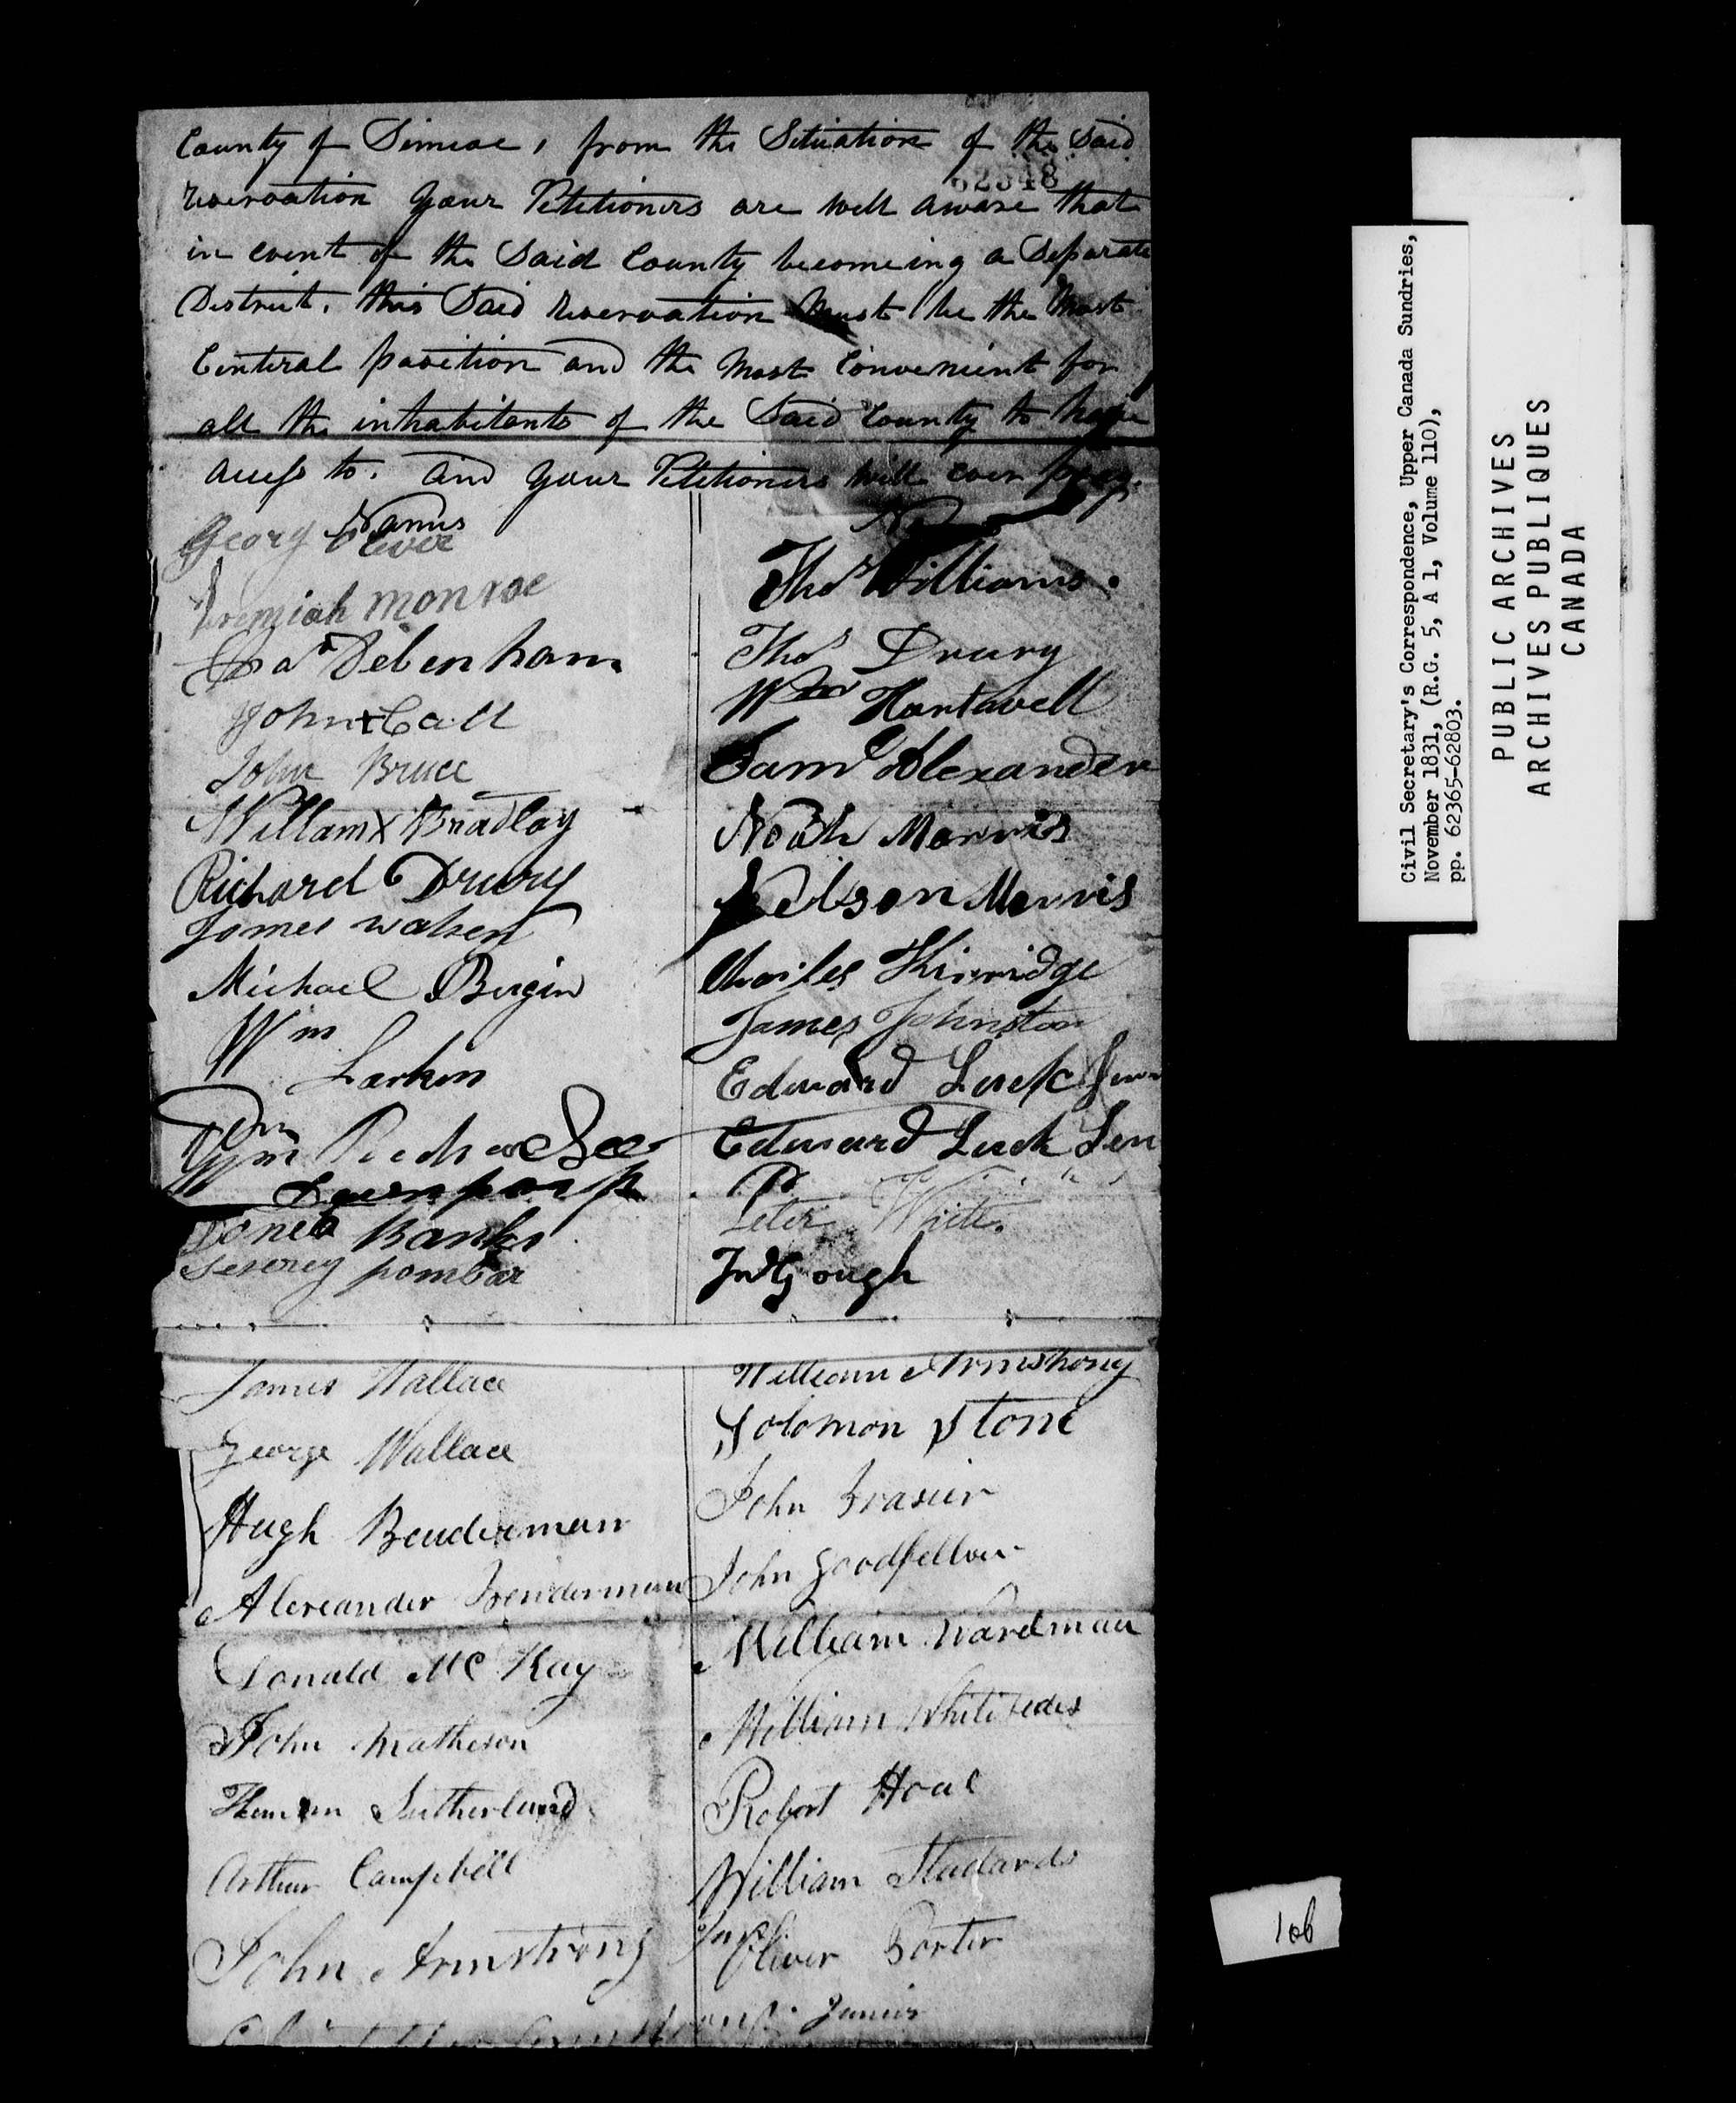 County of Simcoe, from the Situation of the Said
62548
reservation your Petitioners are well aware that
in event of the Said County becomeing a Separate
District. this Said reservation Must be the Most
Centeral position and the Most Convenient for
all the inhabitants of the Said County to have
access to. and your Petitioners will ever pray.
Names
Georg
Jeremiah monroe
Debenham
John x Call
John Bruce
Willam X Bradley
Richard Drury
James watsen
Michael Bergin
Wm
Larken
Wm
Banks
pombar
Thos Williams.
Thos Drury
Wm Hartavell
Saml Alexander
Noah Marvis
Nelson Marvis
Charles Kinridge
James Johnston
Edward Luck Junr
Edward Luck Sen
Peter White.
Jno Gough
James Wallace
George Wallace
Hugh Benderman
Alexeander Benderman
Donald Mc Kay
John Matheson
Sutherland
Arthur Campbell
John Armstrong
William Armstrong
Solomon Stone
John Brasier
John Goodfellow
William Wardman
William Whitesides
Robert Hoac
William
Oliver Porter
Junior
Civil Secretary's Correspondence, Upper Canada Sundries,
November 1831, (R.G. 5, A 1, Volume 110),
pp. 62365-62803.
PUBLIC ARCHIVES
ARCHIVES PUBLIQUES
CANADA
106